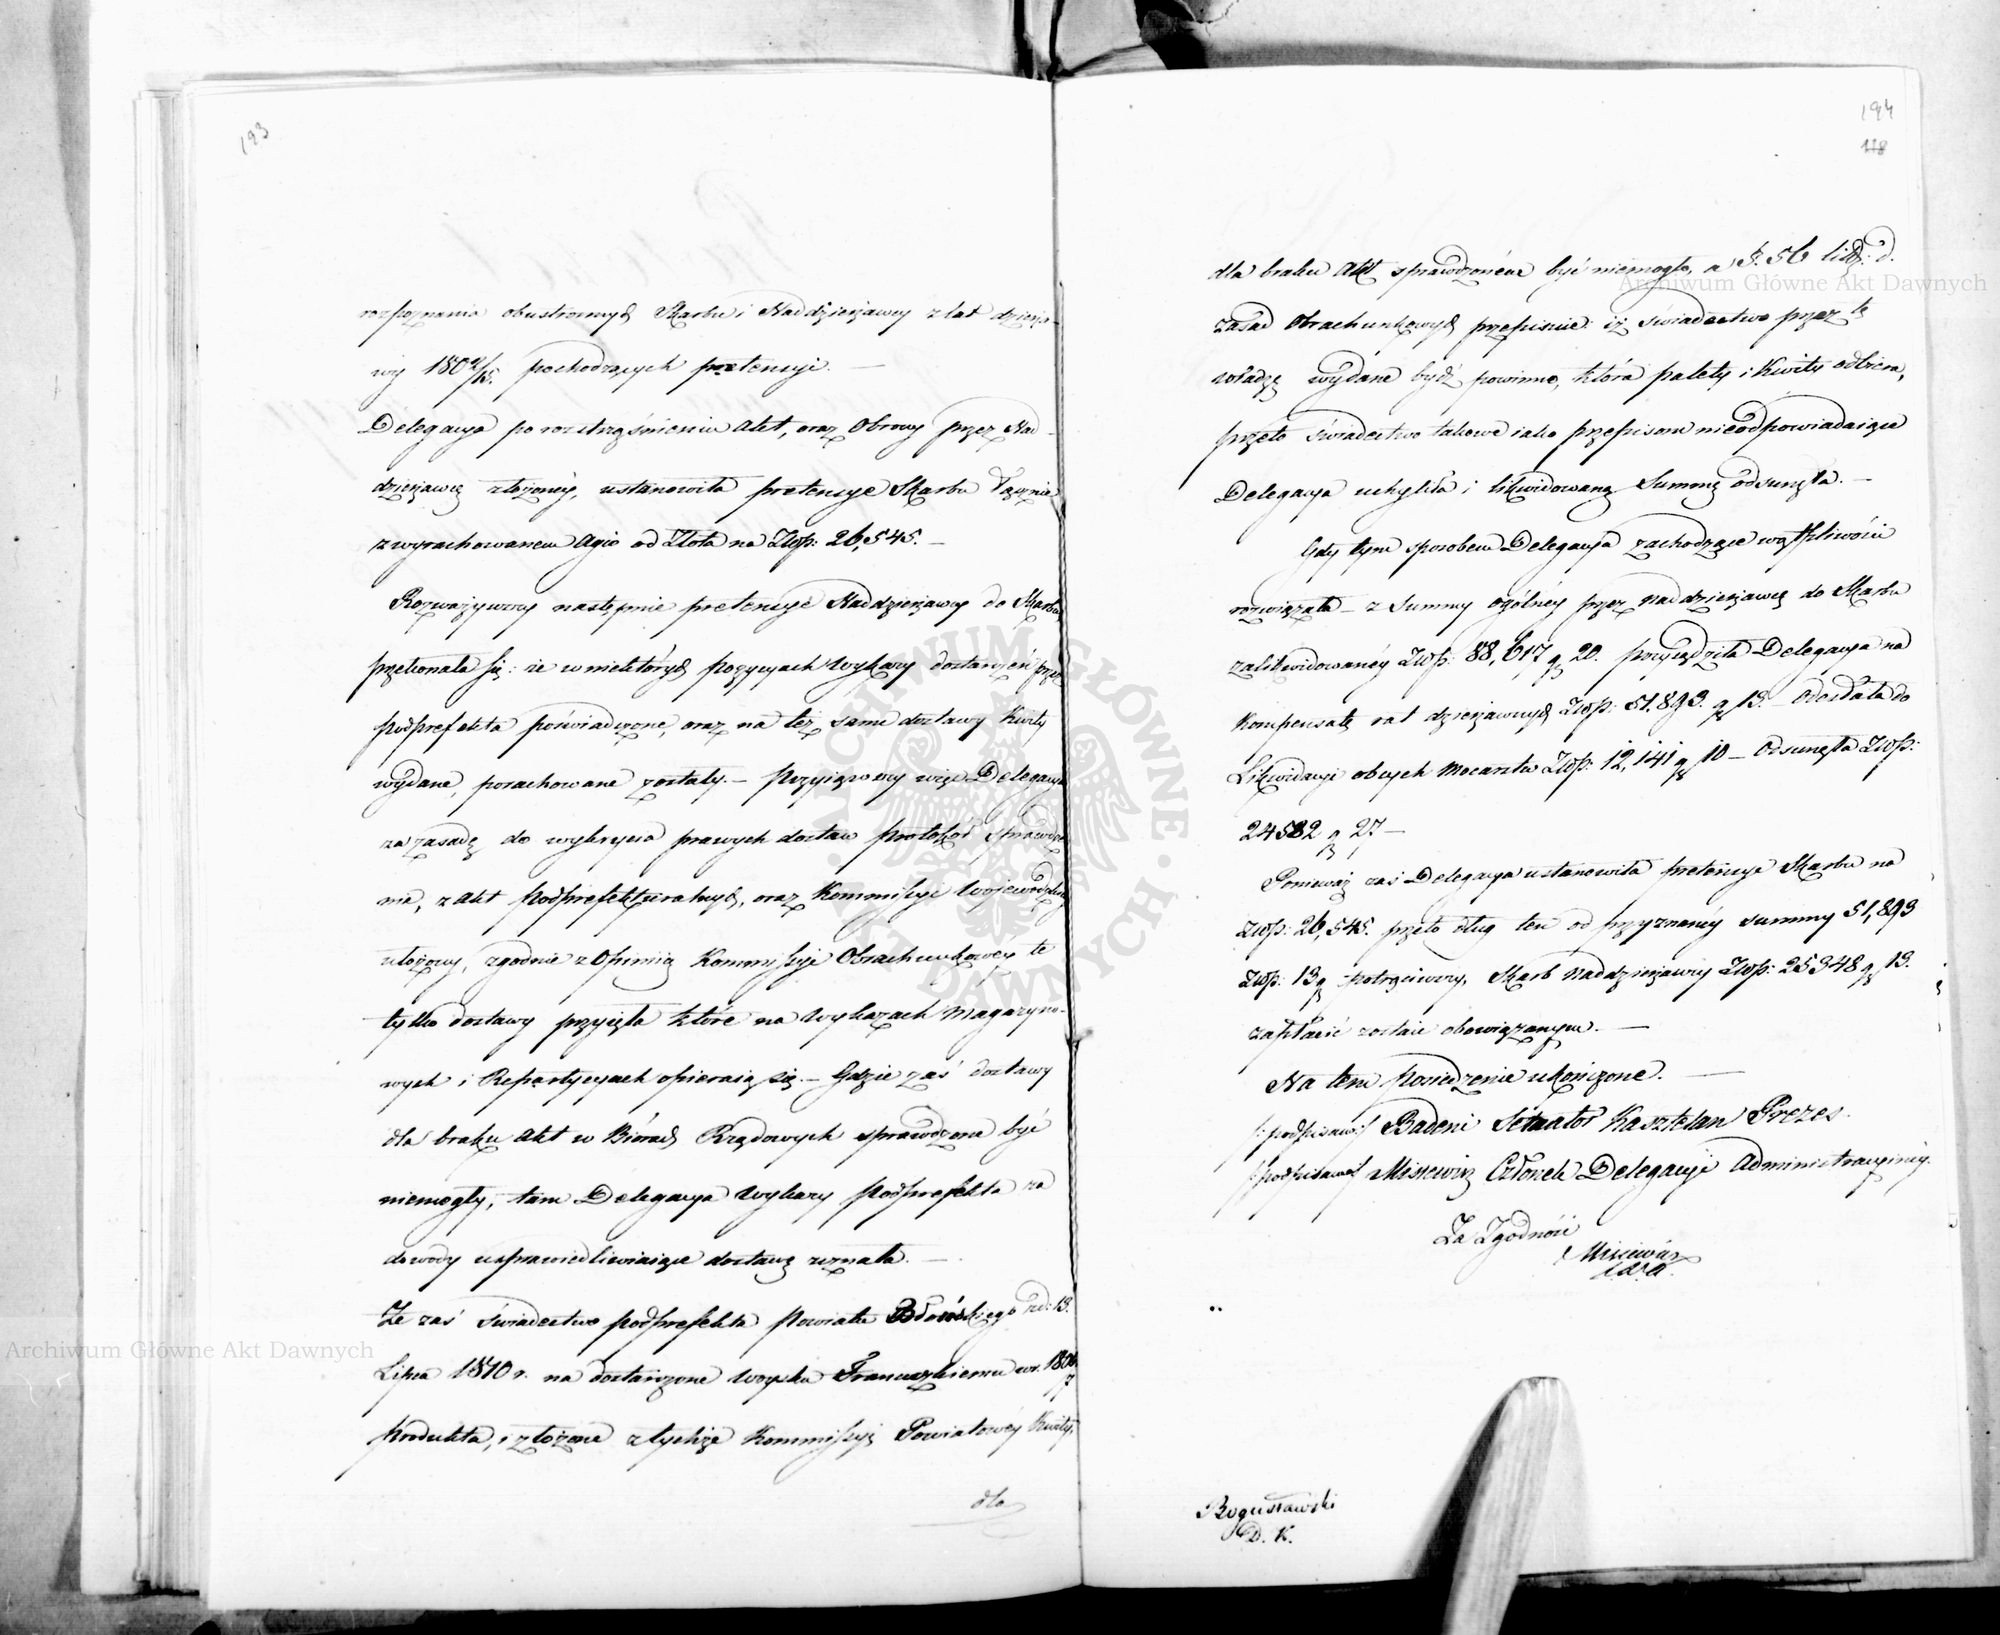 193
rozpoznania obustronnych Skarbu i Naddzierżawcy z lat dzierża-
wy 1809/15. pochodzących pretensyi. —
Delegacya po roztrząśnieniu Akt, oraz Obrony przez Nad-
dzierżawcę złożoney, ustanowiła pretensye Skarbu łącznie
z wyrachowanem Agio od Złota na Złłp: 26,545. —
Rozważywszy następnie pretensye Naddzierżawcy do Skarbu,
przekonała się: że w niektórych pozycyach Wykazy dostarczeń przez
Podprefekta poświadczone, oraz na też same dostawy Kwity
wydane, porachowane zostały. — Przyiąwszy więc Delegacya
za zasadę do wykrycia prawych dostaw protokół sprawdze-
nia, z Akt Podprefekturalnych, oraz Kommissyi Woiewódzkiey
ułożony, zgodnie z Opinią Kommissyi Obrachunkowey te
tylko dostawy przyięła które na Wykazach Magazyno-
wych i Repartycyach opieraią się. — Gdzie zaś dostawy
dla braku Akt w Biórach Rządowych sprawdzone być
niemogły, tam Delegacya Wykazy Podprefekta za
dowody usprawiedliwiaiące dostawę uznała. —
Że zaś świadectwo podprefekta Powiatu Błońskiego nd: 13.
Lipca 1810 r. na dostarczone Woysku Francuzkiemu w r. 1806/7
Produkta, i złożone z tychże Kommissyi Powiatowéy Kwity,
dla
194
118
dla braku Akt sprawdzonem być niemogło, a §. 56 lit: d.
zasad Obrachunkowych przepisuie: iż świadectwo przez tę
władzę wydane bydź powinno, która palety i Kwity odbiera,
przeto świadectwo takowe iako przepisom nieodpowiadaiące
Delegacya uchyliła i likwidowaną Summę odsunęła. —
Gdy tym sposobem Delegacya zachodzące wątpliwości
rozwiązała — z Summy ogólney przez naddzierżawcę do Skarbu
zalikwidowanéy Złłp: 88,617 g 20. przysądziła Delegacya na
Kompensatę rat dzierżawnych Złłp: 51,893. g 13. — Odesłała do
Likwidacyi obcych Mocarstw Złłp: 12,141 g 10 — Odsunęła Złłp:
24582 g 27 —
Ponieważ zaś Delegacya ustanowiła pretensye Skarbu na
Złłp: 26,545. przeto dług ten od przyznanéy summy 51,893
Złłp: 13 g potrąciwszy, Skarb Naddzierżawcy Złłp: 25348 g 13.
zapłacić zostaie obowiązanym. —
Na tém Posiedzenie ukończone. —
/: podpisano :/ Badeni Senator Kasztelan Prezes.
/: podpisano :/ Misiewicz Członek Delegacyi Administracyiney.
Za Zgodność
Misiewicz
Bogusławski
D. K.